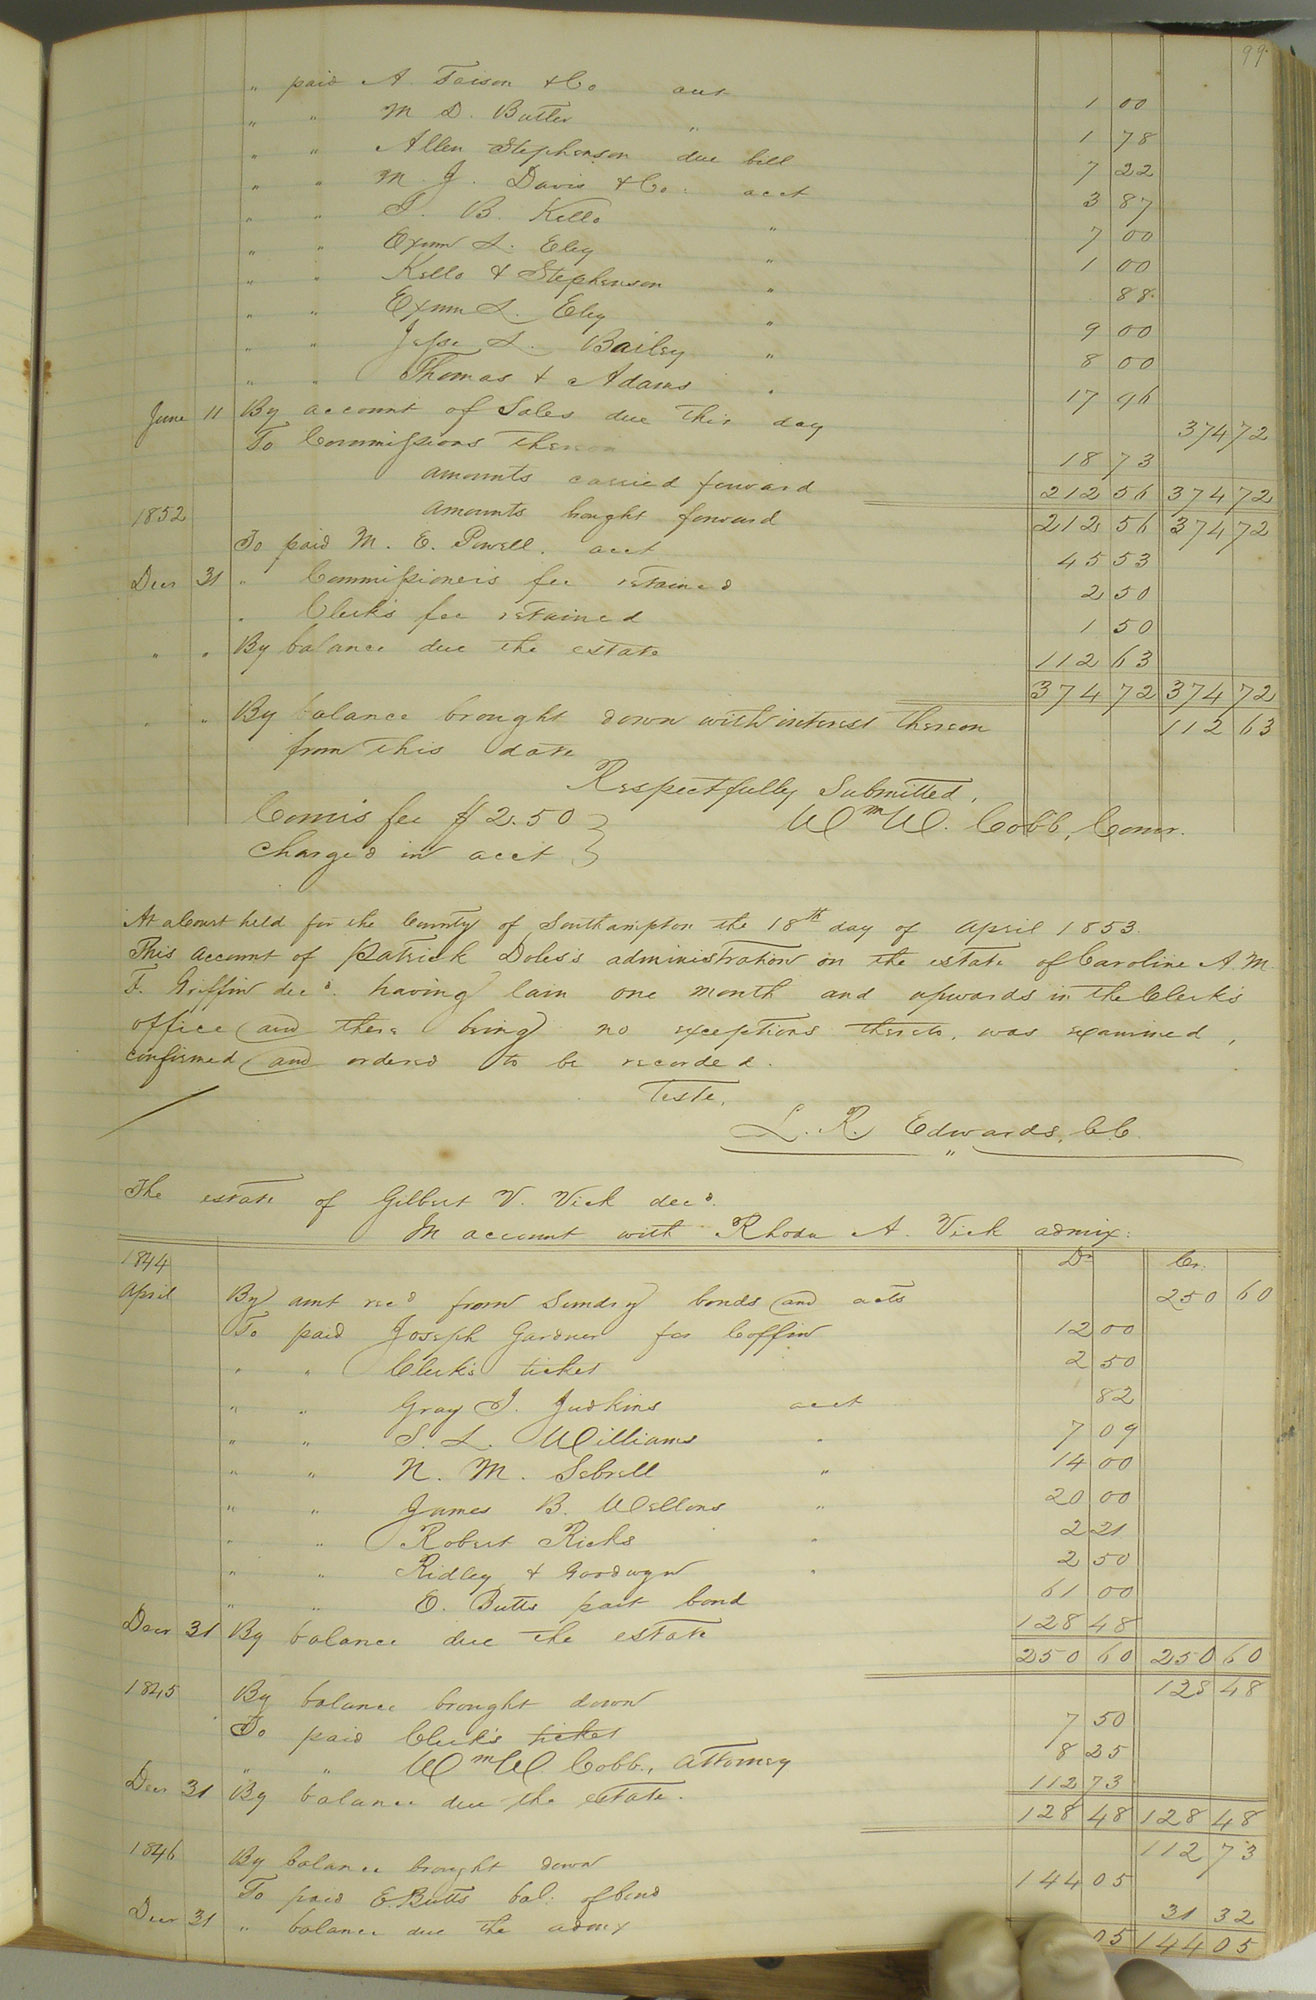 99.
" paid A. Faison & Co acct 1 00
" " M. D. Butler " 1 78
" " Allen Stephenson due bill 7 22
" " M. J. Davis & Co. acct 3 87
" " S. B. Kello " 7 00
" " Exum L. Eley " 1 00
" " Kello & Stephenson " 88
" " Exum L. Eley " 9 00
" " Jesse L. Bailey " 8 00
" " Thomas & Adams " 17 96
June 11 By account of Sales due this day 374 72
To Commissions thereon 18 73
amounts carried forward 212 56 374 72
1852 amounts bought forward 212 56 374 72
To paid M. E. Powell. acct 45 53
Decr 31 " Commissioneris fee retained 2 50
" Clerk's fee retained 1 50
" " By balance due the estate 112 63
374 72 374 72
" " By balance brought down with interest thereon 112 63
from this date
Respectfully Submitted,
Comis fee $2.50 } Wm W. Cobb, Comr.
Charged in acct }
At a Court held for the County of Southampton the 18th day of April 1853.
This account of Patrick Doles's administration on the estate of Caroline A. M.
F. Griffin decd. having lain one month and upwards in the Clerk's
office and there being no exceptions thereto, was examined,
confirmed and ordered to be recorded.
Teste,
L. R. Edwards, C.C.
The estate of Gilbert V. Vick decd.
In account with Rhoda A. Vick admix:
1844 Dr Cr.
April By amt recd from Sundry bonds and acts 250 60
To paid Joseph Gardner for Coffin 12 00
" " Clerk's ticket 2 50
" " Gray J. Judkins acct 82
" " S. L. Williams " 7 09
" " N. M. Sebrell " 14 00
" " James B. Wellons " 20 00
" " Robert Ricks " 2 21
" " Ridley & Goodwyn " 2 50
" " E. Butts part bond 61 00
Decr 31 By balance due the estate 128 48
250 60 250 60
1845 By balance brought down 128 48
To paid Clerk's ticket 7 50
" " Wm W Cobb, attorney 8 25
Decr 31 By balance due the estate. 112 73
128 48 128 48
1846 By balance brought down 112 73
To paid E. Butts bal: of bond 144 05
Decr 31 " balance due the admx 31 32
05 144 05